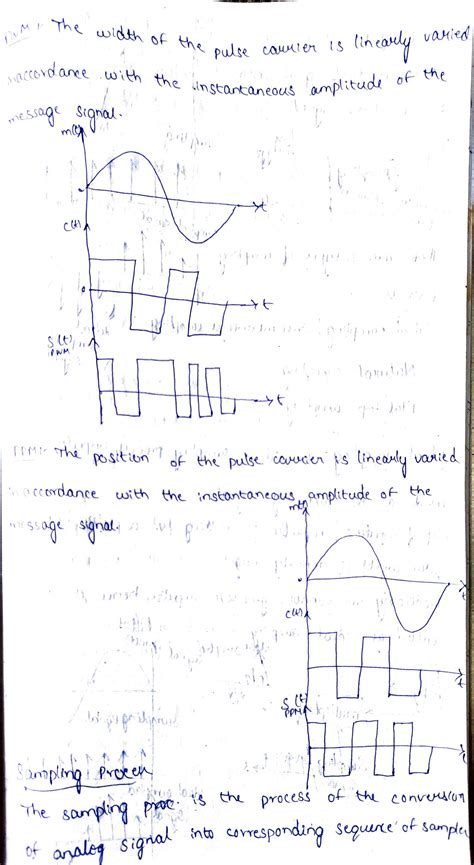 P.W.M:- The width of the pulse carrier is linearly varied
inaccordance with the instantaneous amplitude of the
message signal.
m(t)
t
c(t)
t
S(t)
PWM
t
PPM:- The position of the pulse carrier is linearly varied
inaccordance with the instantaneous amplitude of the
message signal.
m(t)
t
c(t)
t
S(t)
PPM
t
Sampling Process
The sampling proc. is the process of the conversion
of analog signal into corresponding sequence of samples